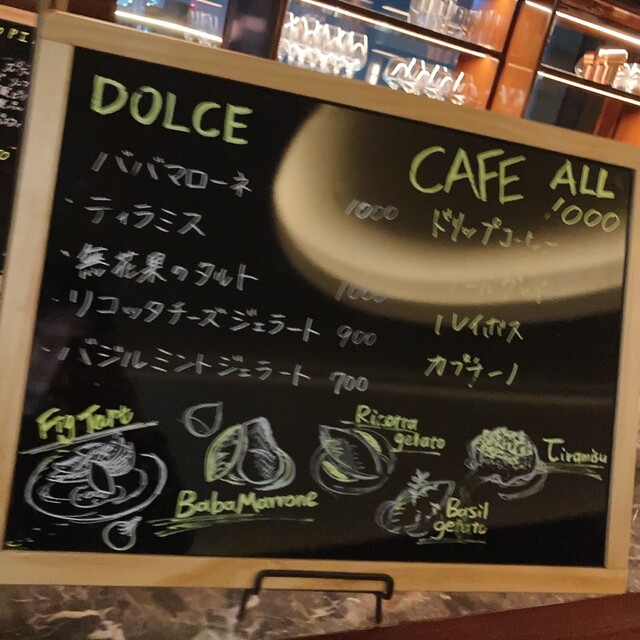 DOLCE
ババマローネ
・ティラミス 1000
・無花果のタルト 1000
・リコッタチーズジェラート 900
・バジルミントジェラート 700
CAFE ALL 1000
ドリップコーヒー
ルイボス
カプチーノ
Fig Tart
Baba Marrone
Ricotta
gelato
Tiramisu
Basil
gelato